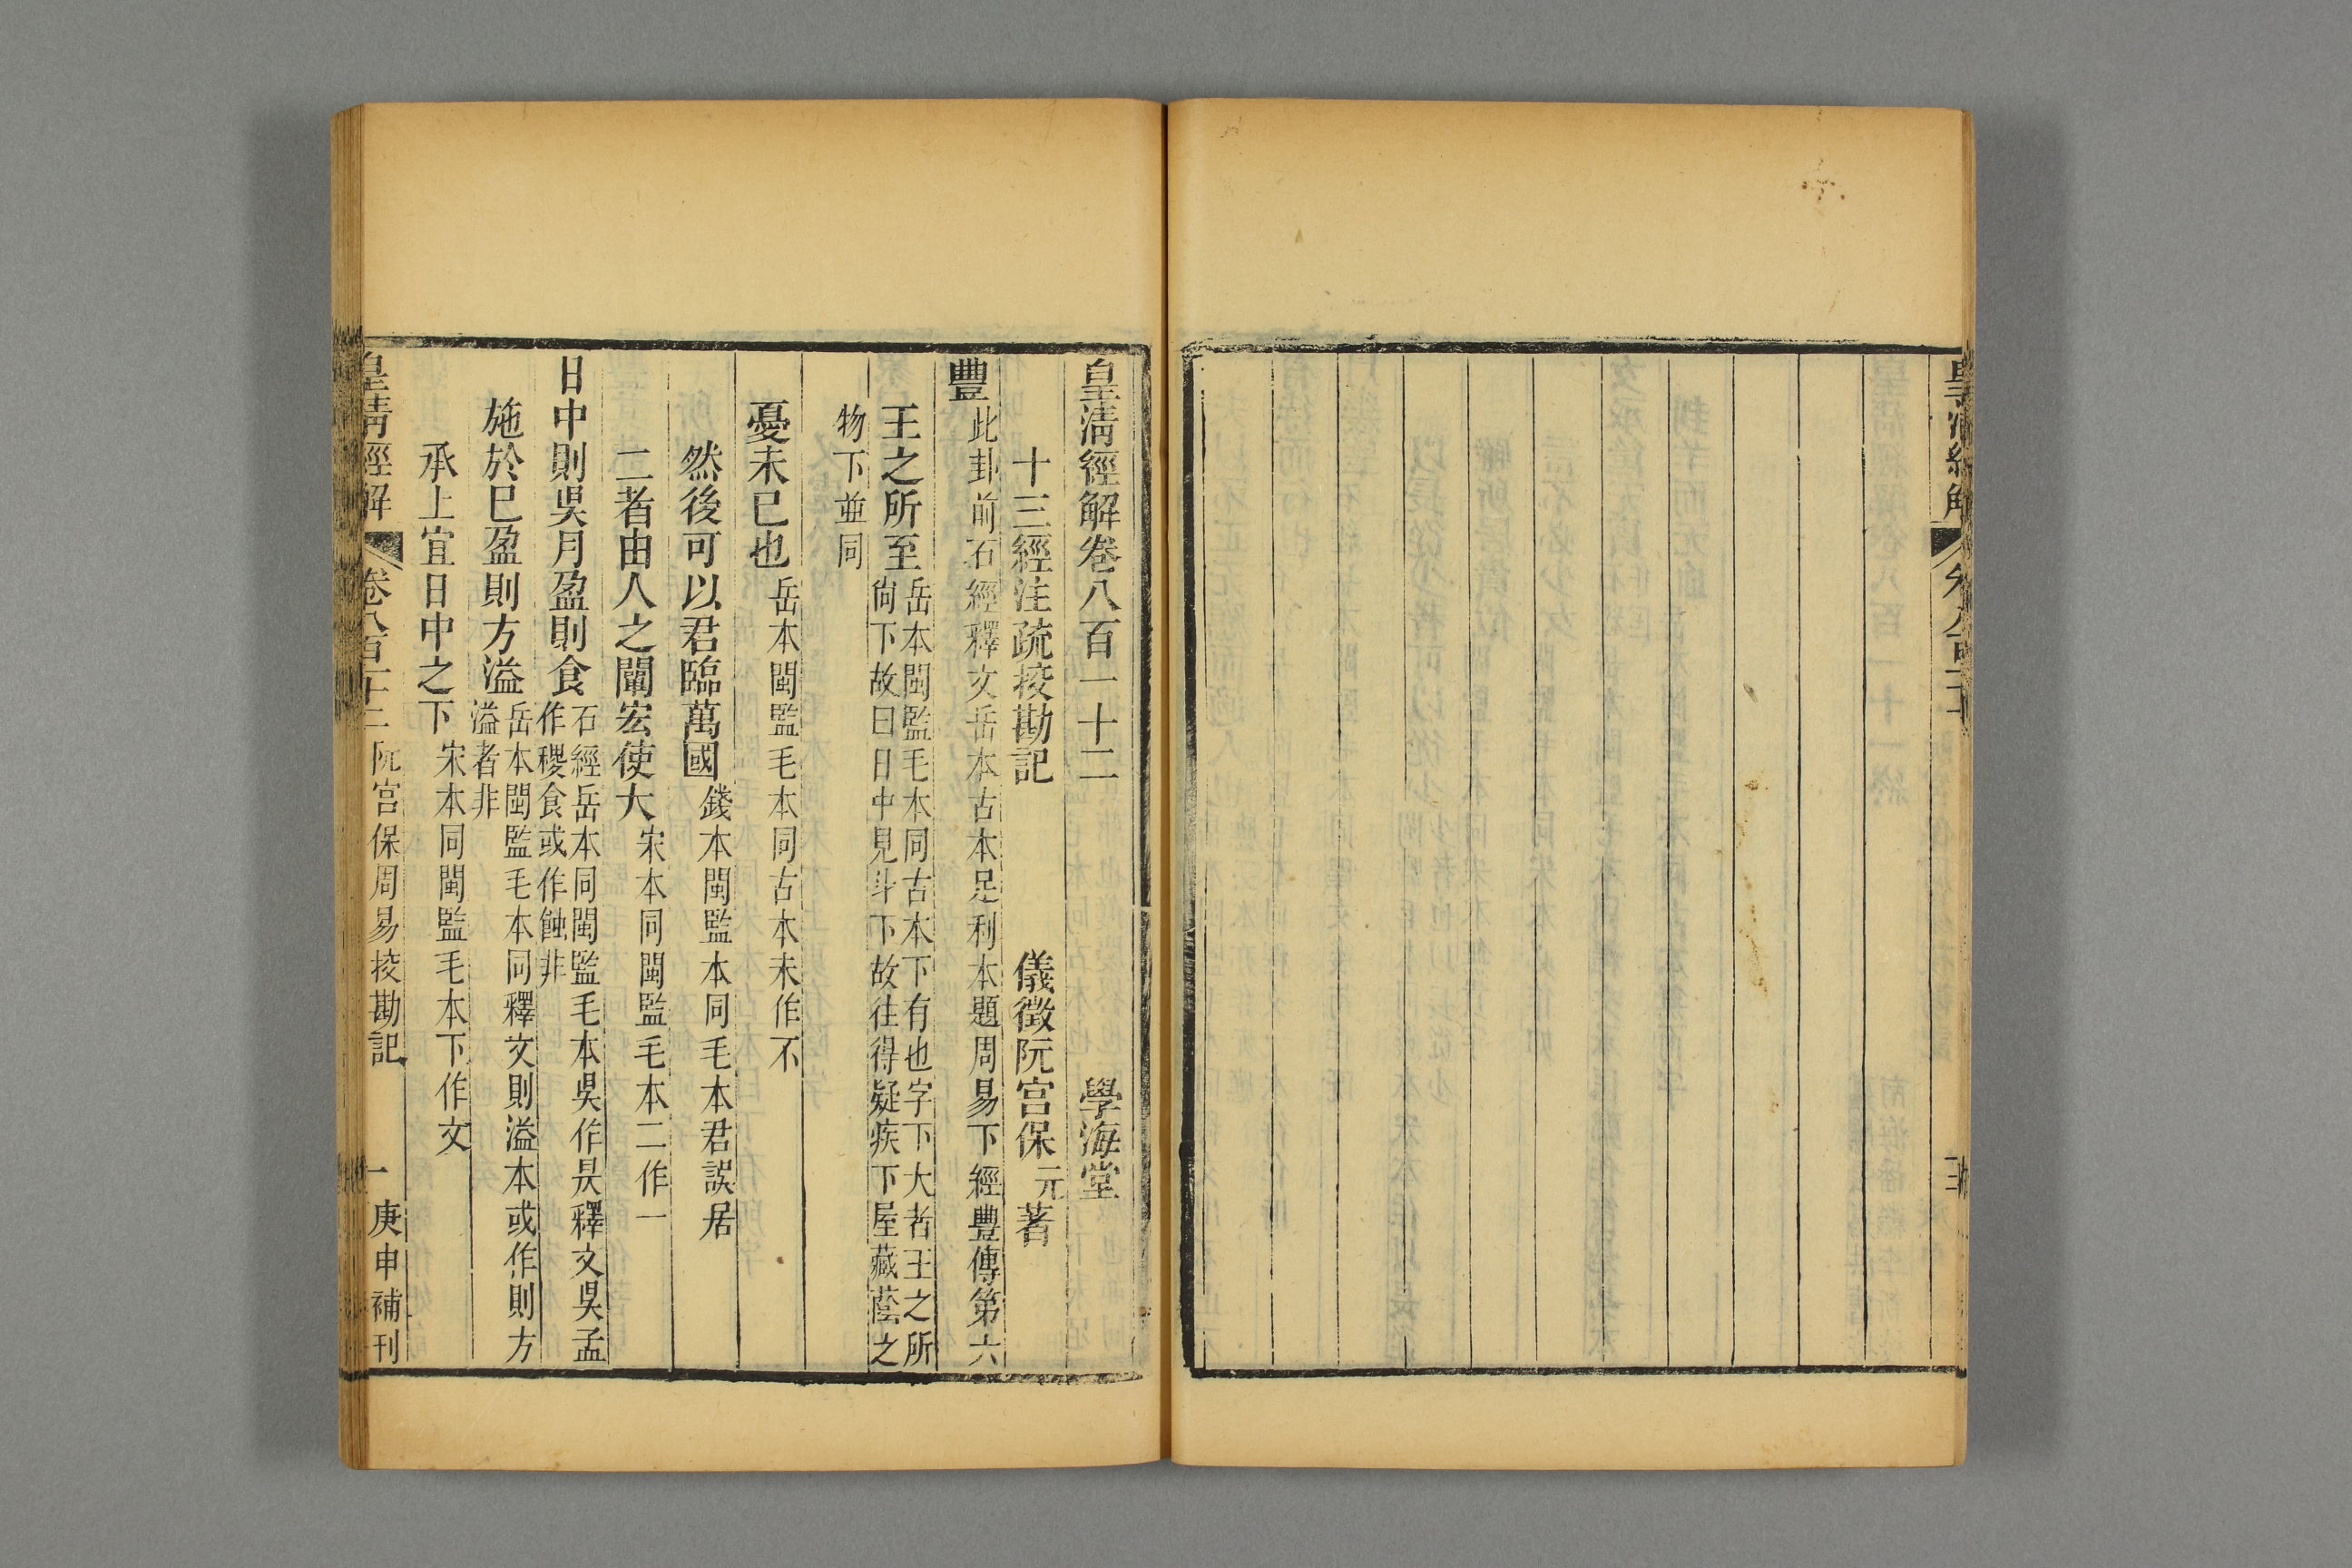 皇清經解
皇清經解卷八百一十二　學海堂
十三經注疏挍勘記　儀徵阮宮保元著
豐　此卦前石經釋文岳本古本足利本題周易下經豐傳第六
王之所至　岳本閩監毛本同古本下有也字下大者王之所
尙下故曰日中見斗下故往得疑疾下屋藏蔭之
物下並同
憂未已也　岳本閩監毛本同古本未作不
然後可以君臨萬國　錢本閩監本同毛本君誤居
二者由人之闡宏使大　宋本同閩監毛本二作一
日中則吳月盈則食　石經岳本同閩監毛本吳作昃釋文吳孟
作稷食或作蝕非
施於已盈則方溢　岳本閩監毛本同釋文則溢本或作則方
溢者非
承上宜日中之下　宋本同閩監毛本下作文
皇清經解　卷八百十二　阮宮保周易挍勘記　一　庚申補刊